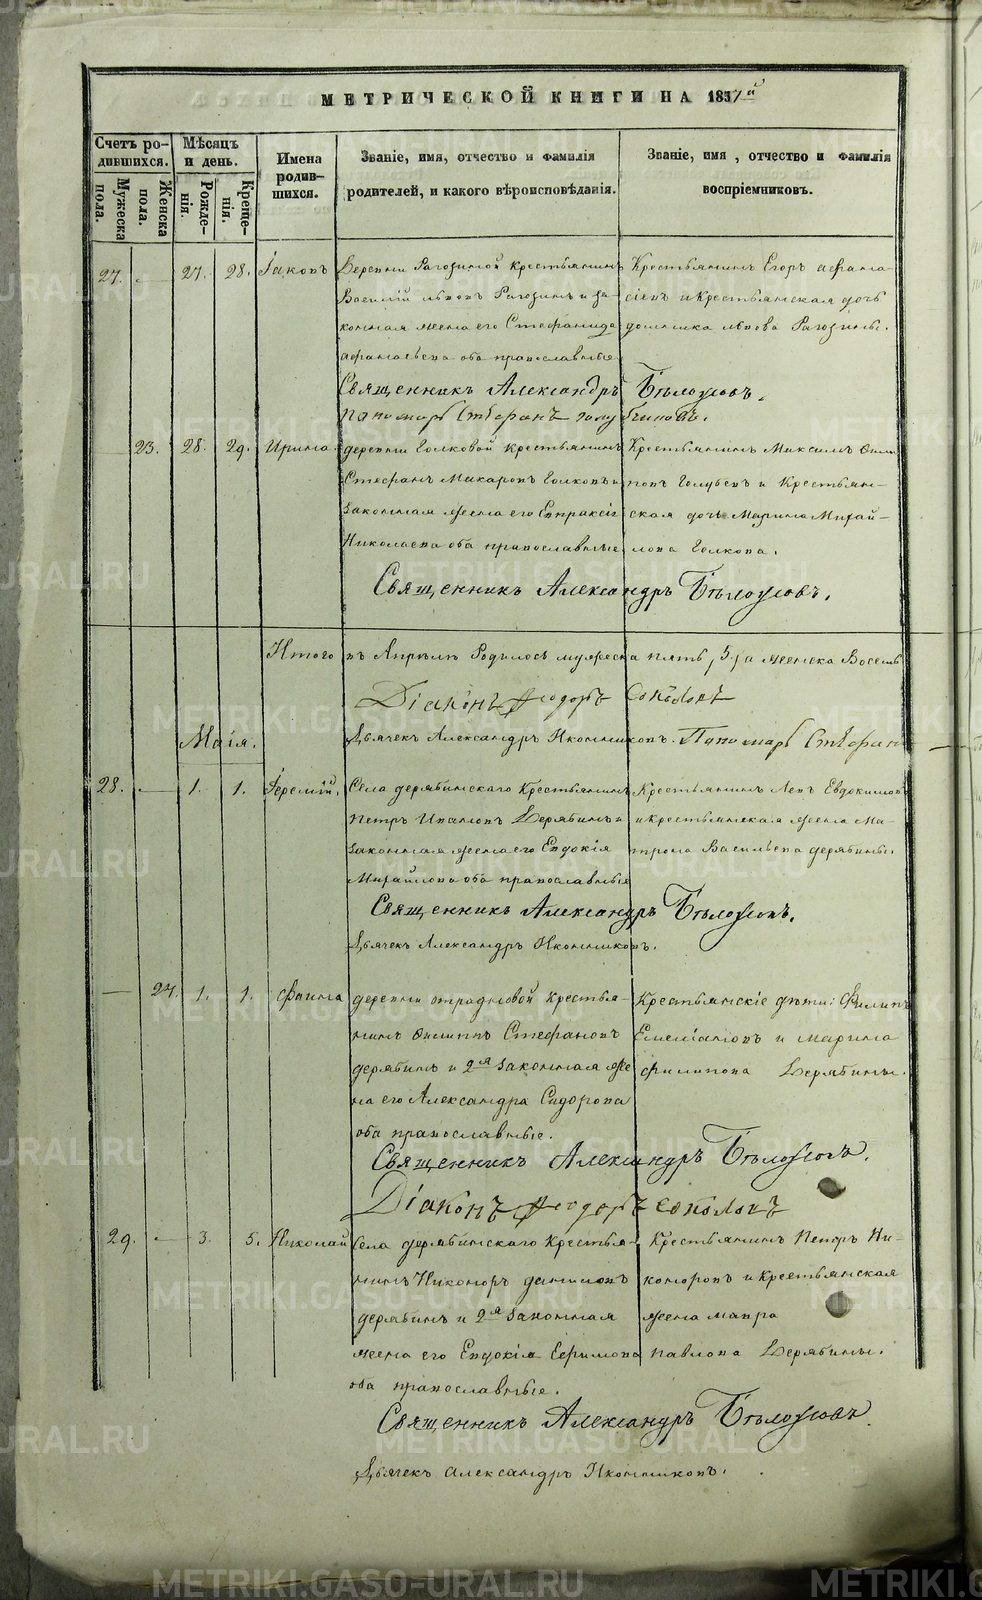 МЕТРИЧЕСКОЙ КНИГИ НА 1837й
Счетъ ро-
дившихся.
Мужеска
пола.
Женска
пола.
Мѣсяцъ
и день.
Рожде-
нія.
Креще-
нія.
Имена
родив-
шихся.
Званіе, имя, отчество и фамилія
родителей, и какого вѣроисповѣданія.
Званіе, имя, отчество и фамилія
воспріемниковъ.
27. 27. 28. Іаковъ Деревни Рагозиной крестьянинъ Крестьянинъ Егоръ афана-
Василій львовъ Рагозинъ и за- сіевъ и крестьянская дочь
конная жена его Стефанида домника львова Рагозины.
афанасьева оба православные
Священникъ Александръ Бѣлоусовъ.
пономарь Стефанъ
23. 28. 29. Ирина деревни Голковой крестьянинъ Крестьянинъ Максимъ Фили
Стефанъ Макаровъ Голковъ и повъ Голубевъ и Крестьян-
законная жена его Евпраксія ская дочь Марина Михай-
Николаева оба православные лова Голкова.
Священникъ Александръ Бѣлоусовъ.
Итого въ Апрѣлѣ Родилось мужеска пять, 5, а женска Восемь
Діаконъ Феодоръ Соколовъ
Маія. Дьячекъ Александръ Иконниковъ. Пономарь Стефанъ
28. 1. 1. Іеремій. Села дерябинскаго Крестьянинъ Крестьянинъ Левъ Евдокимовъ
Петръ Ивановъ Дерябинъ и и крестьянская жена Ма-
законная жена его Евдокія трона Васильева дерябины.
Михайлова оба православные
Священникъ Александръ Бѣлоусовъ.
Дьячекъ Александръ Иконниковъ.
24. 1. 1. Фаина деревни отрадновой Крестья- Крестьянскіе дѣти: Филипъ
нинъ Филиппъ Стефановъ Емеліановъ и марина
дерябинъ и 2я законная же- филипова Дерябины.
на его Александра Сидорова
оба православные.
Священникъ Александръ Бѣлоусовъ.
Діаконъ Феодоръ Соколовъ
29. 3. 5. Николай Села дерябинскаго Крестья- Крестьянинъ Петръ Ни-
нинъ Никоноръ даниловъ коноровъ и крестьянская
дерябинъ и 2я законная жена мавра
жена его Евдокія Ефимова павлова Дерябины.
оба православные.
Священникъ Александръ Бѣлоусовъ.
Дьячекъ александръ Иконниковъ.
METRIKI.GASO-URAL.RU